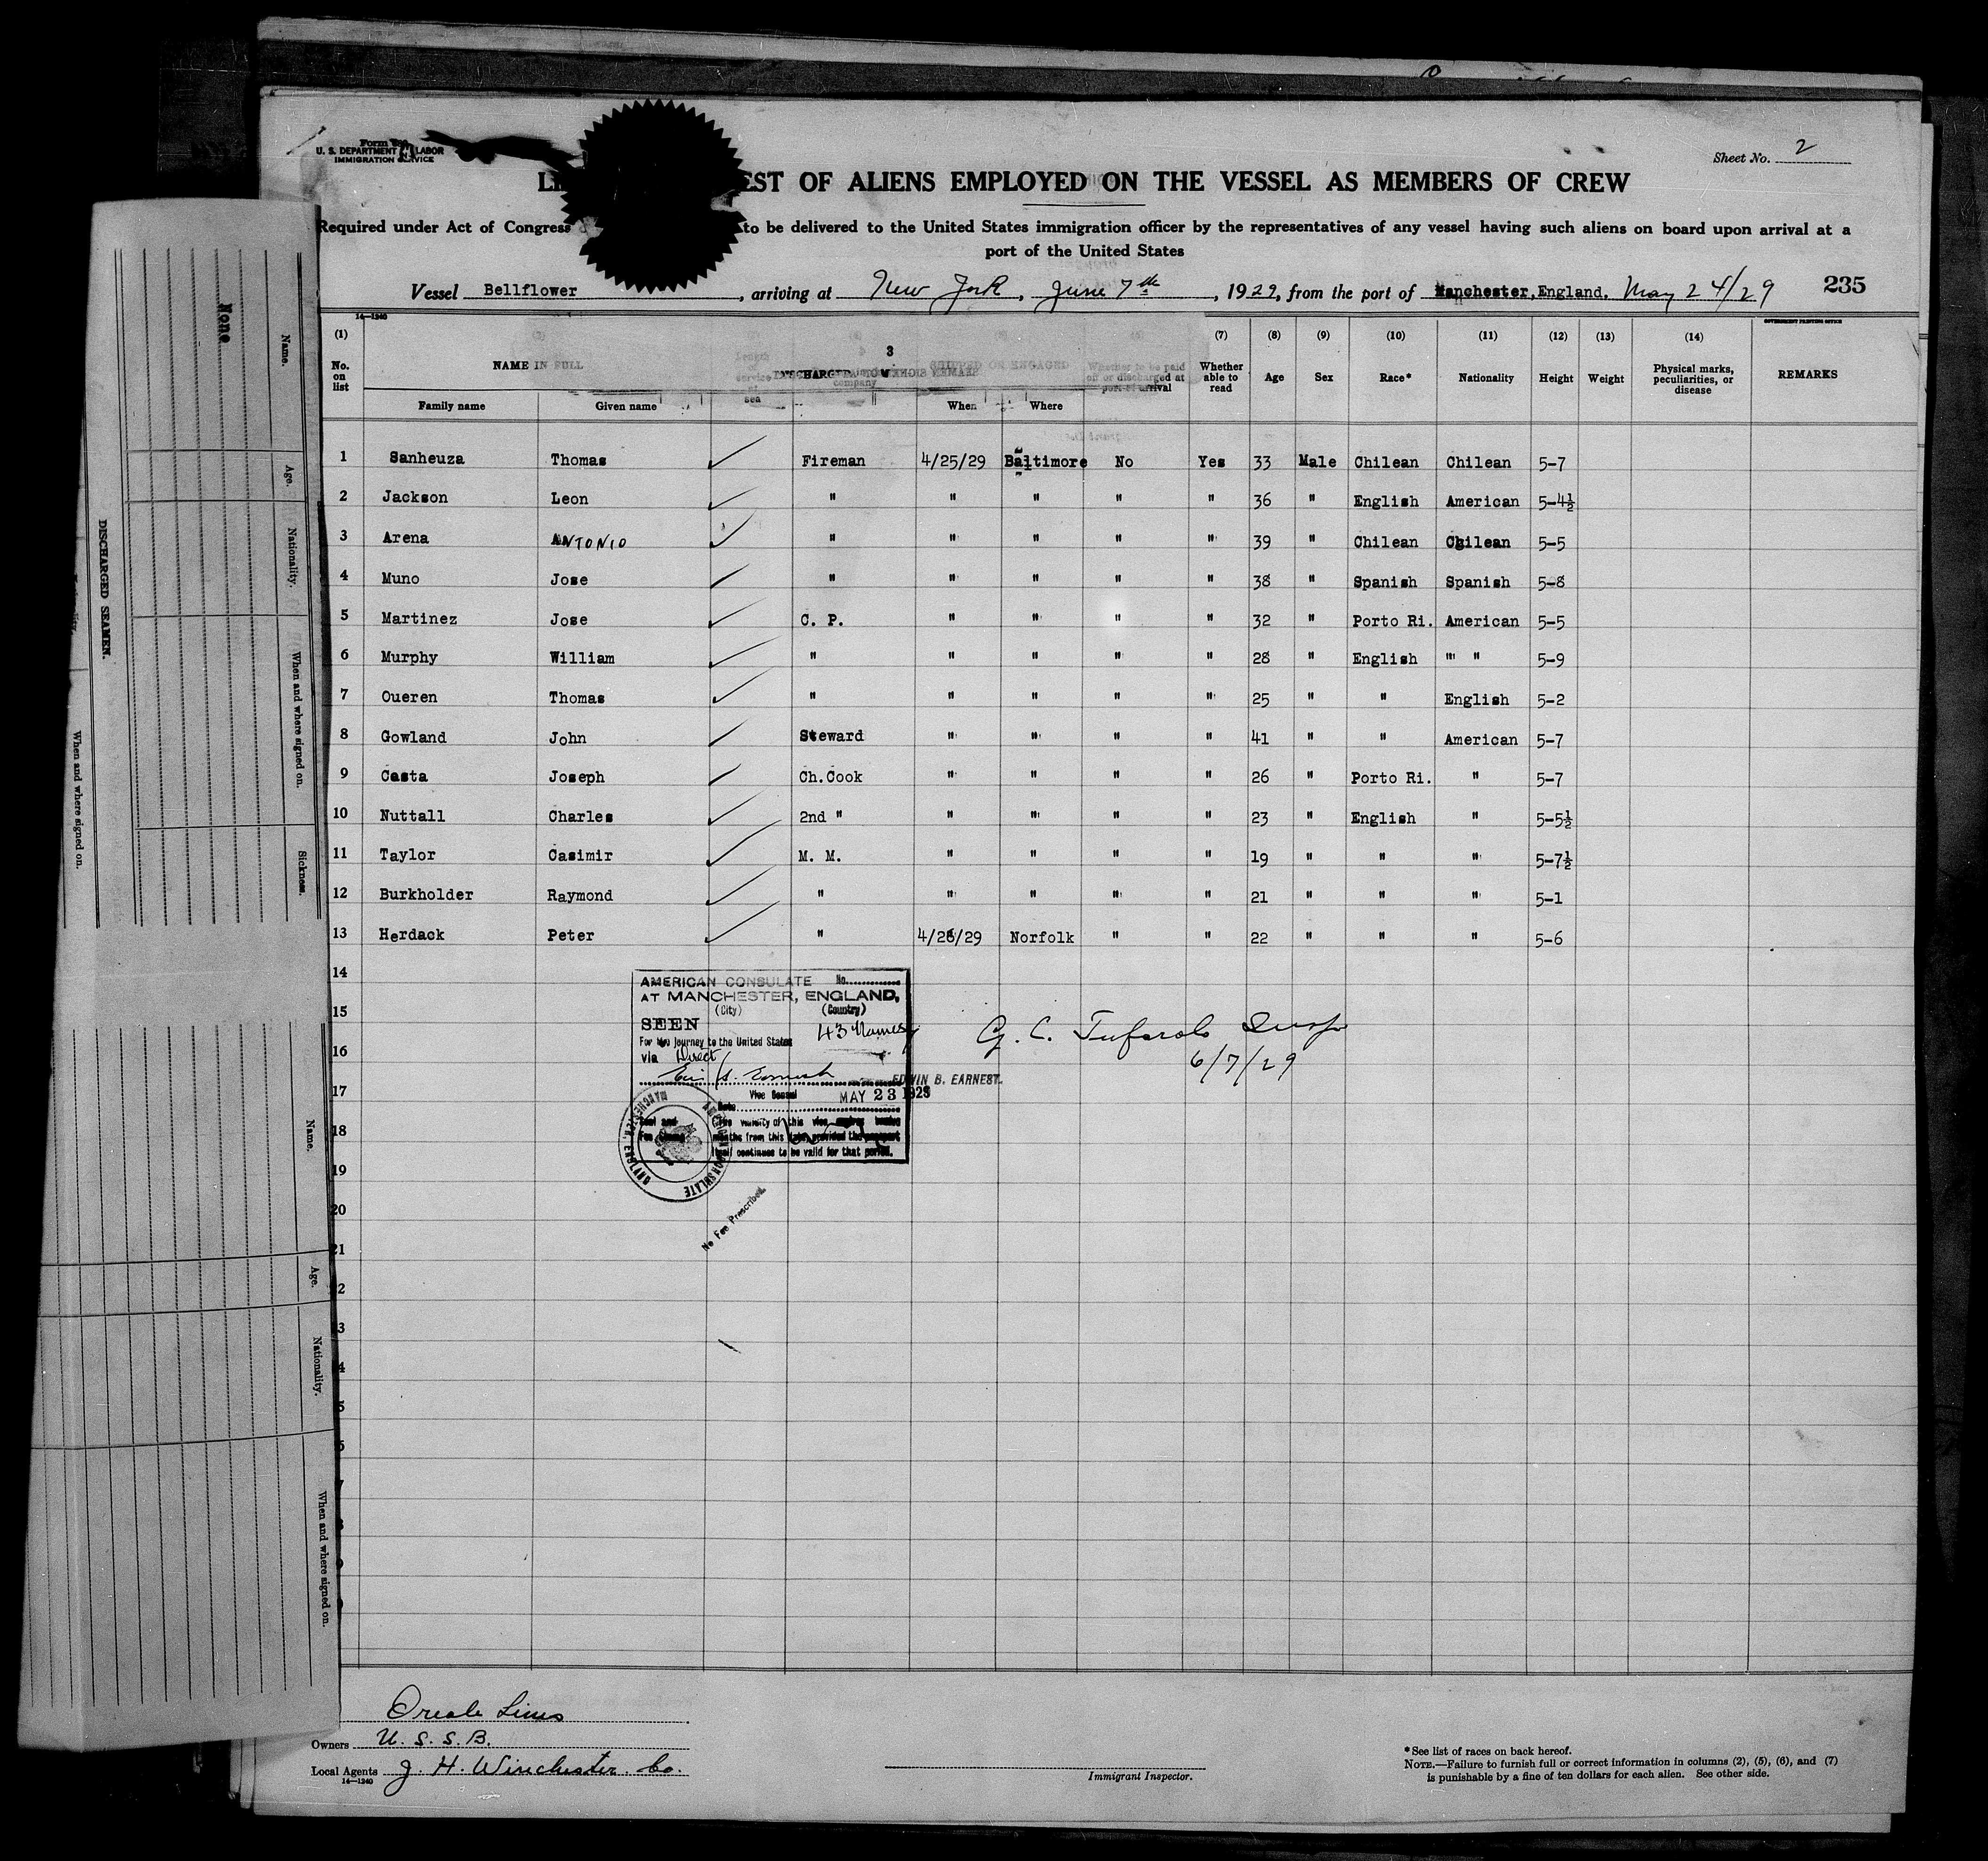 Sheet No. 2
U. S. DEPARTMENT LABOR
IMMIGRATION SERVICE
EST OF ALIENS EMPLOYED ON THE VESSEL AS MEMBERS OF CREW
Required under Act of Congress to be delivered to the United States immigration officer by the representatives of any vessel having such aliens on board upon arrival at a
port of the United States
Vessel Bellflower, arriving at New York, June 7th, 1929, from the port of Manchester, England. May 24/29 235
14-1240
GOVERNMENT PRINTING OFFICE
(1) (7) (8) (9) (10) (11) (12) (13) (14)
No. on list NAME IN FULL Whether to be paid off or discharged at port of arrival Whether able to read Age Sex Race* Nationality Height Weight Physical marks, peculiarities, or disease REMARKS
Family name Given name When Where
1 Sanheuza Thomas Fireman 4/25/29 Baltimore No Yes 33 Male Chilean Chilean 5-7
2 Jackson Leon " " " " " 36 " English American 5-4½
3 Arena ANTONIO " " " " " 39 " Chilean Chilean 5-5
4 Muno Jose " " " " " 38 " Spanish Spanish 5-8
5 Martinez Jose C. P. " " " " 32 " Porto Ri. American 5-5
6 Murphy William " " " " " 28 " English " " 5-9
7 Oueren Thomas " " " " " 25 " " English 5-2
8 Gowland John Steward " " " " 41 " " American 5-7
9 Casta Joseph Ch.Cook " " " " 26 " Porto Ri. " 5-7
10 Nuttall Charles 2nd " " " " " 23 " English " 5-5½
11 Taylor Casimir M. M. " " " " 19 " " " 5-7½
12 Burkholder Raymond " " " " " 21 " " " 5-1
13 Herdack Peter " 4/26/29 Norfolk " " 22 " " " 5-6
14
15
16
17
18
19
20
21
AMERICAN CONSULATE No.
AT MANCHESTER, ENGLAND,
(City) (Country)
SEEN 43 Names
For the journey to the United States
via Direct
EDWIN B. EARNEST.
Vice Consul MAY 23 1929
Date
The validity of this
months from this date, provided the passport
itself continues to be valid for that period.
AMERICAN CONSULATE
MANCHESTER, ENGLAND
No Fee Prescribed.
6/7/29
Lines
Owners U. S. S. B.
Local Agents J. H. Winchester Co.
14-1240
Immigrant Inspector.
*See list of races on back hereof.
NOTE.—Failure to furnish full or correct information in columns (2), (5), (6), and (7)
is punishable by a fine of ten dollars for each alien. See other side.
DISCHARGED SEAMEN.
None
Name.
Age.
Nationality.
When and where signed on.
Sickness.
When and where signed on.
Name.
Age.
Nationality.
When and where signed on.